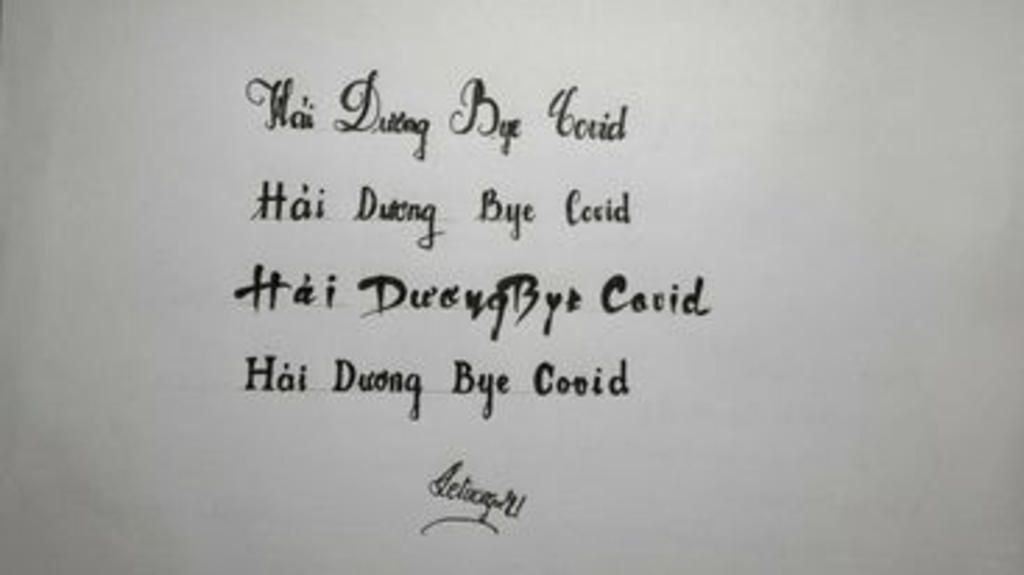 Hải Dương Bye Covid
Hải Dương Bye Covid
Hải Dương Bye Covid
Hải Dương Bye Covid